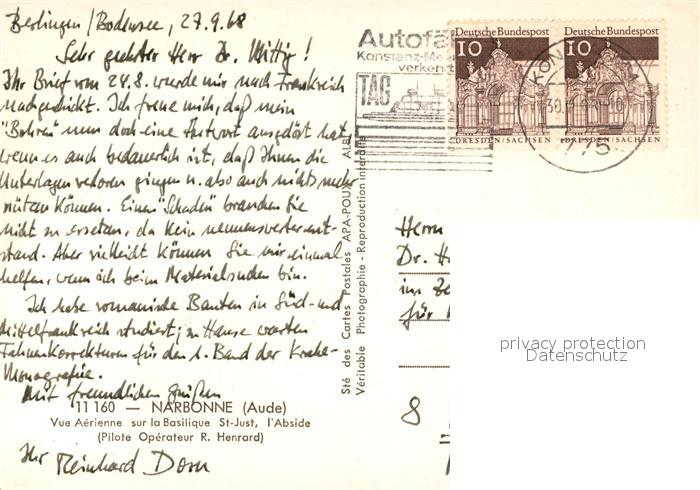 Berlingen / Bodensee, 27.9.68
Sehr geehrter Herr Dr. Mittig!
Ihr Brief vom 24.8. wurde mir nach Frankreich
nachgeschickt. Ich freue mich, daß mein
"Bohren" nun doch eine Antwort ausgelöst hat,
wenn es auch bedauerlich ist, daß Ihnen die
Unterlagen verloren gingen u. also auch nichts mehr
nützen können. Einen "Schaden" brauchen Sie
nicht zu ersetzen, da kein nennenswerter ent-
stand. Aber vielleicht können Sie mir einmal
helfen, wenn ich beim Materialsuchen bin.
Ich habe romanische Bauten in Süd- und
Mittelfrankreich studiert; zu Hause warten
Fahnenkorrekturen für den 1. Band der Krahe-
Monografie.
Mit freundlichen Grüßen
11 160 — NARBONNE (Aude)
Vue Aérienne sur la Basilique St-Just, l'Abside
(Pilote Opérateur R. Henrard)
Ihr Reinhard Dorn
Sté des Cartes Postales APA-POUX ALBI
Véritable Photographie - Reproduction interdite
Autofä
Konstanz-Me
verkehrt
TAG
Deutsche Bundespost
10
DRESDEN/SACHSEN
Deutsche Bundespost
10
DRESDEN/SACHSEN
KON
775
Herrn
Dr. H
im
für
8
privacy protection
Datenschutz